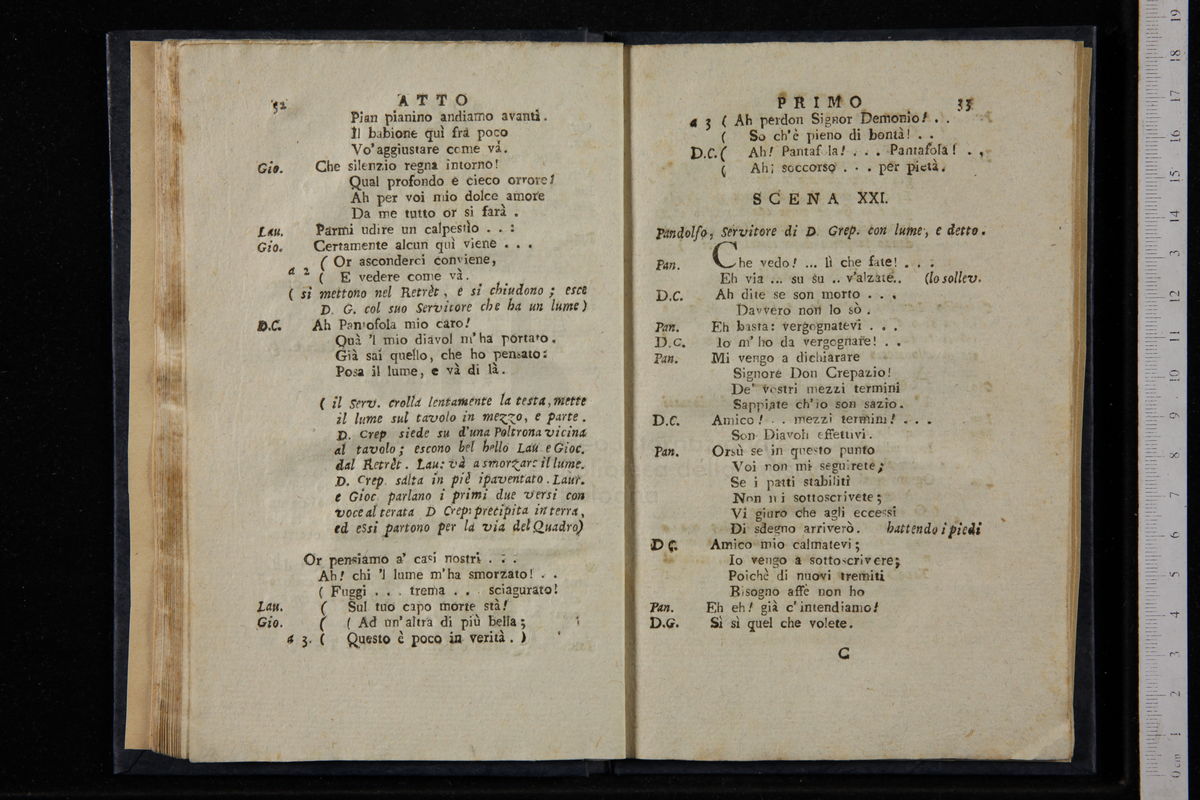 32 ATTO
Pian pianino andiamo avanti.
Il babione quì frà poco
Vo'aggiustare come và.
Gio. Che silenzio regna intorno!
Qual profondo e cieco orrore!
Ah per voi mio dolce amore
Da me tutto or si farà .
Lau. Parmi udire un calpestìo . . :
Gio. Certamente alcun quì viene . . .
a 2 ( Or asconderci conviene,
( E vedere come và.
( si mettono nel Retrèt, e si chiudono ; esce
D. G. col suo Servitore che ha un lume)
D.C. Ah Pantofola mio caro!
Quà 'l mio diavol m'ha portato.
Già sai quello, che ho pensato:
Posa il lume, e và di là.
( il Serv. crolla lentamente la testa, mette
il lume sul tavolo in mezzo, e parte.
D. Crep siede su d'una Poltrona vicina
al tavolo ; escono bel bello Lau e Gioc.
dal Retrèt. Lau: và a smorzare il lume.
D. Crep. salta in piè ipaventato. Laur.
e Gioc parlano i primi due versi con
voce al terata D Crep: precipita in terra,
ed essi partono per la via del Quadro)
Or pensiamo a' casi nostri . . .
Ah! chi 'l lume m'ha smorzato! . .
( Fuggi . . . trema . . . sciagurato!
Lau. ( Sul tuo capo morte stà!
Gio. ( ( Ad un'altra di più bella ;
a 3. ( Questo è poco in verità . )
PRIMO 33
a 3 ( Ah perdon Signor Demonio! . .
( So ch'è pieno di bontà! . .
D.C. ( Ah! Pantaf la! . . . Pantafola! . .
( Ah; soccorso . . . per pietà.
SCENA XXI.
Pandolfo, Servitore di D. Grep. con lume, e detto.
Pan. Che vedo! ... lì che fate! . . .
Eh via ... su su .. v'alzate.. (lo sollev.
D.C. Ah dite se son morto . . .
Davvero non lo sò .
Pan. Eh basta: vergognatevi . . .
D.C. Io m' ho da vergognare! . .
Pan. Mi vengo a dichiarare
Signore Don Crepazio!
De' vostri mezzi termini
Sappiate ch'io son sazio.
D.C. Amico! . . mezzi termini! . . .
Son Diavoli effettivi.
Pan. Orsù se in questo punto
Voi non mi seguirete;
Se i patti stabiliti
Non mi sottoscrivete ;
Vi giuro che agli eccessi
Di sdegno arriverò. battendo i piedi
D C. Amico mio calmatevi ;
Io vengo a sottoscrivere;
Poichè di nuovi tremiti
Bisogno affè non ho
Pan. Eh eh! già c'intendiamo!
D.G. Sì sì quel che volete.
C